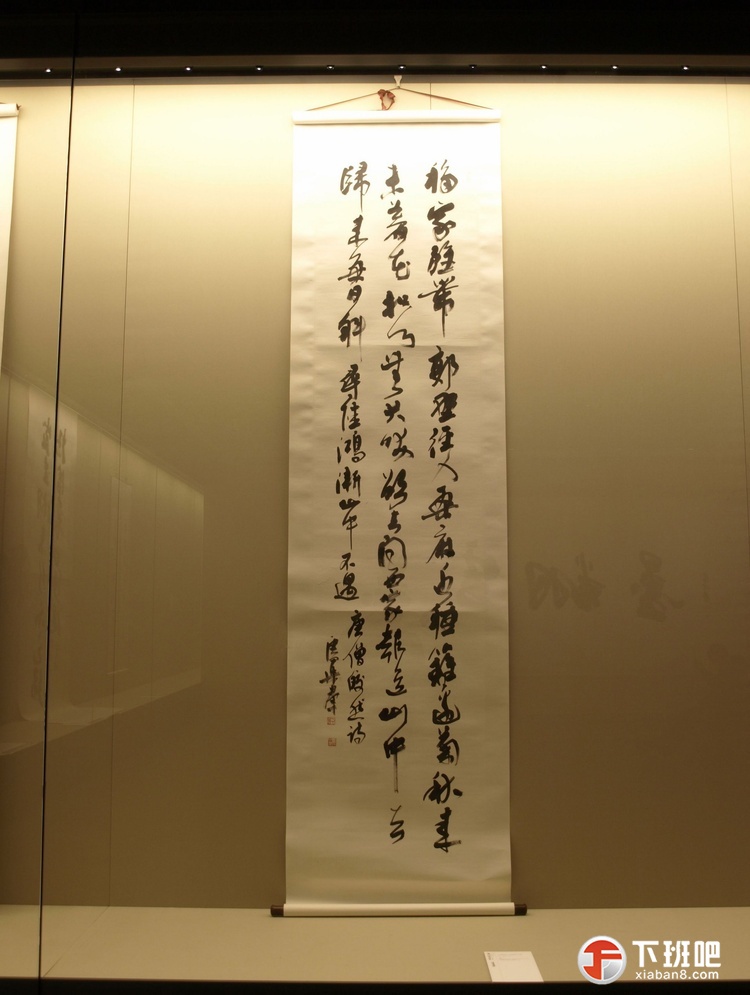 移家雖帶郭野徑入桑麻近種籬邊菊秋來
未著花扣門無犬吠欲去問西家報道山中去
歸來每日斜 尋陸鴻漸山中不遇 唐僧皎然詩
下班吧
xiaban8.com